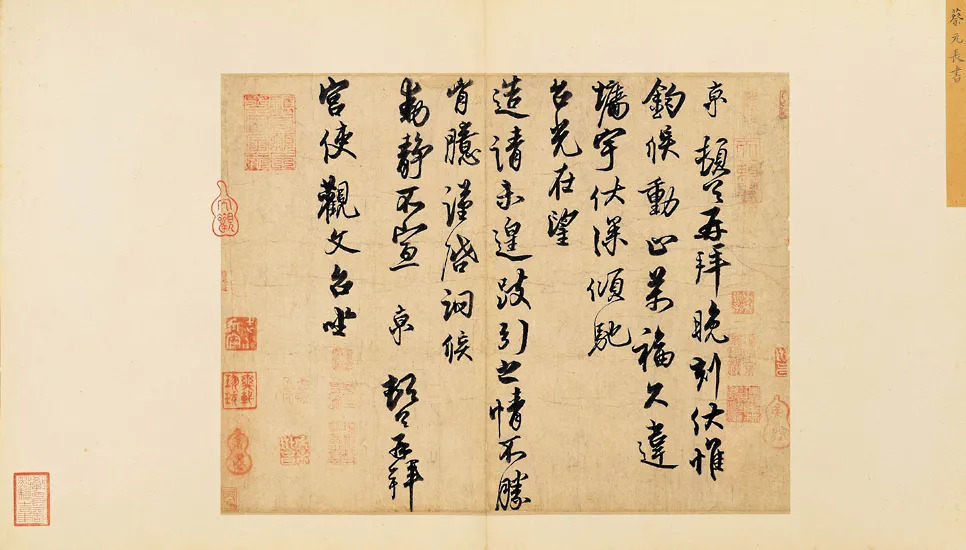 蔡元長書
京 頓首再拜晚刻伏惟
鈞候動止萬福久違
牆宇伏深傾馳
台光在望
造請未遑跂引之情不勝
胷臆謹啓詞候
動靜不宣 京 頓首再拜
宮使觀文台坐